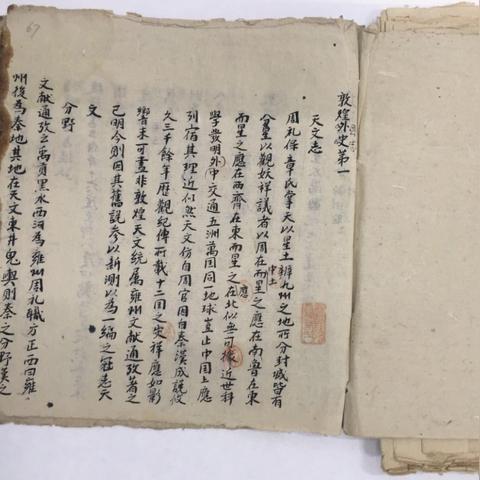 敦煌外史第一
天文志
周礼保章氏掌天以星土辨九州之地所分封域皆有
分星以觀妖祥議者以周在中土而星之應在南魯在東
而星之應在西齊在東而星之應在北似無可據近世科
學發明外中交通五洲萬囯同一地球豈止中囯上應
列宿其理近似然天文仿自周官因自秦漢成説攸
久三千餘年歷觀紀傳所載十二囯之灾祥應如影
響未可盡非敦煌天文統屬雍州文献通攷著之
已明今則因其舊說参以新測以為一編之冠志天
文
分野
文献通攷云禹貢黑水西河為雍州周礼職方正西曰雍
州後為秦地其地在天文東井鬼輿則秦之分野漢之
67